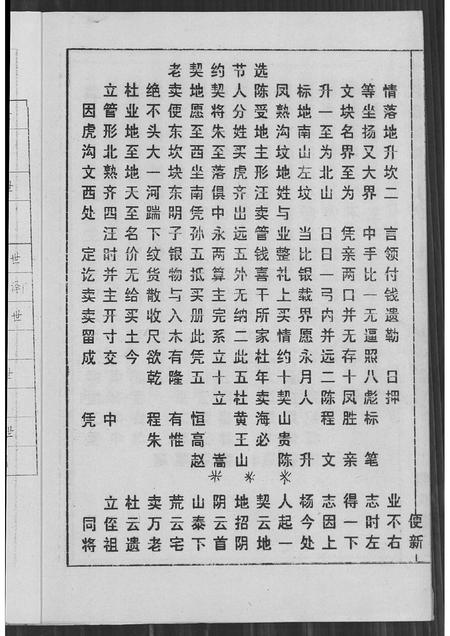 使新
情落地升坎二 言领付钱遗勒 日押 业不右
等坐扬又大界 中手比一无逼照八彪标 笔 志时左
文块名界至为 凭亲两口并无存十凤胜 亲 得一下
升一至为北山 日日一弓内并远二陈程 文 志因上
标地南山左坟 当比银载界愿永月人 升 杨今处
凤熟沟坟地姓与业整礼上买情约十契山贵陈 人起一
选陈受地主形汪卖管钱喜干所家杜年卖海必 契云地
节人分姓买虎齐出远五外无纳二此五杜黄王山 地招阴
约契将朱至落俱中永两算主完系立十立 嵩 阴云首
契地愿至西坐南凭孙五抵买册此凭五 恒高赵 山泰下
老卖便东坎块东明子银物与入木有隆 有惟 荒云宅
绝不头大一河踹下纹货散收尺欲乾 程朱 卖万老
杜业地至地天至名价无给买土今 杜云遗
立管形北熟齐四汪时并主开寸交 中 立侄祖
因虎沟文西处 定讫卖卖留成 凭 同将